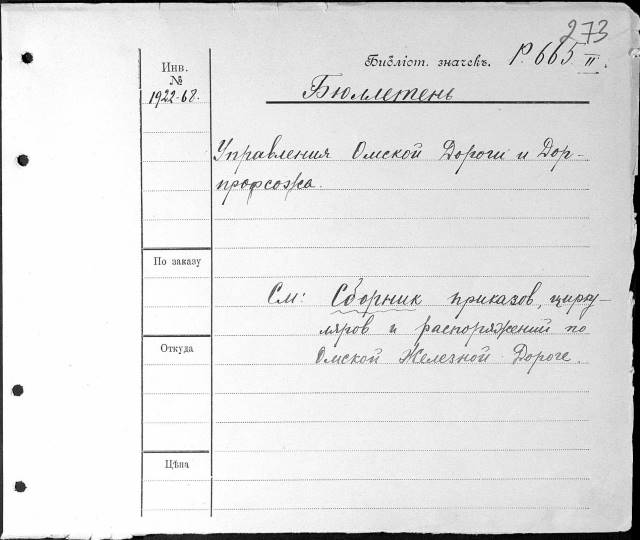 273
Инв.
№
1922-68.
Библіот. значекъ. Р. 665 II.
Бюллетень
Управления Омской Дороги и Дор-
профсожа.
По заказу
См: Сборник приказов, цирку-
ляров и распоряжений по
Омской Железной Дороге.
Откуда
Цѣна